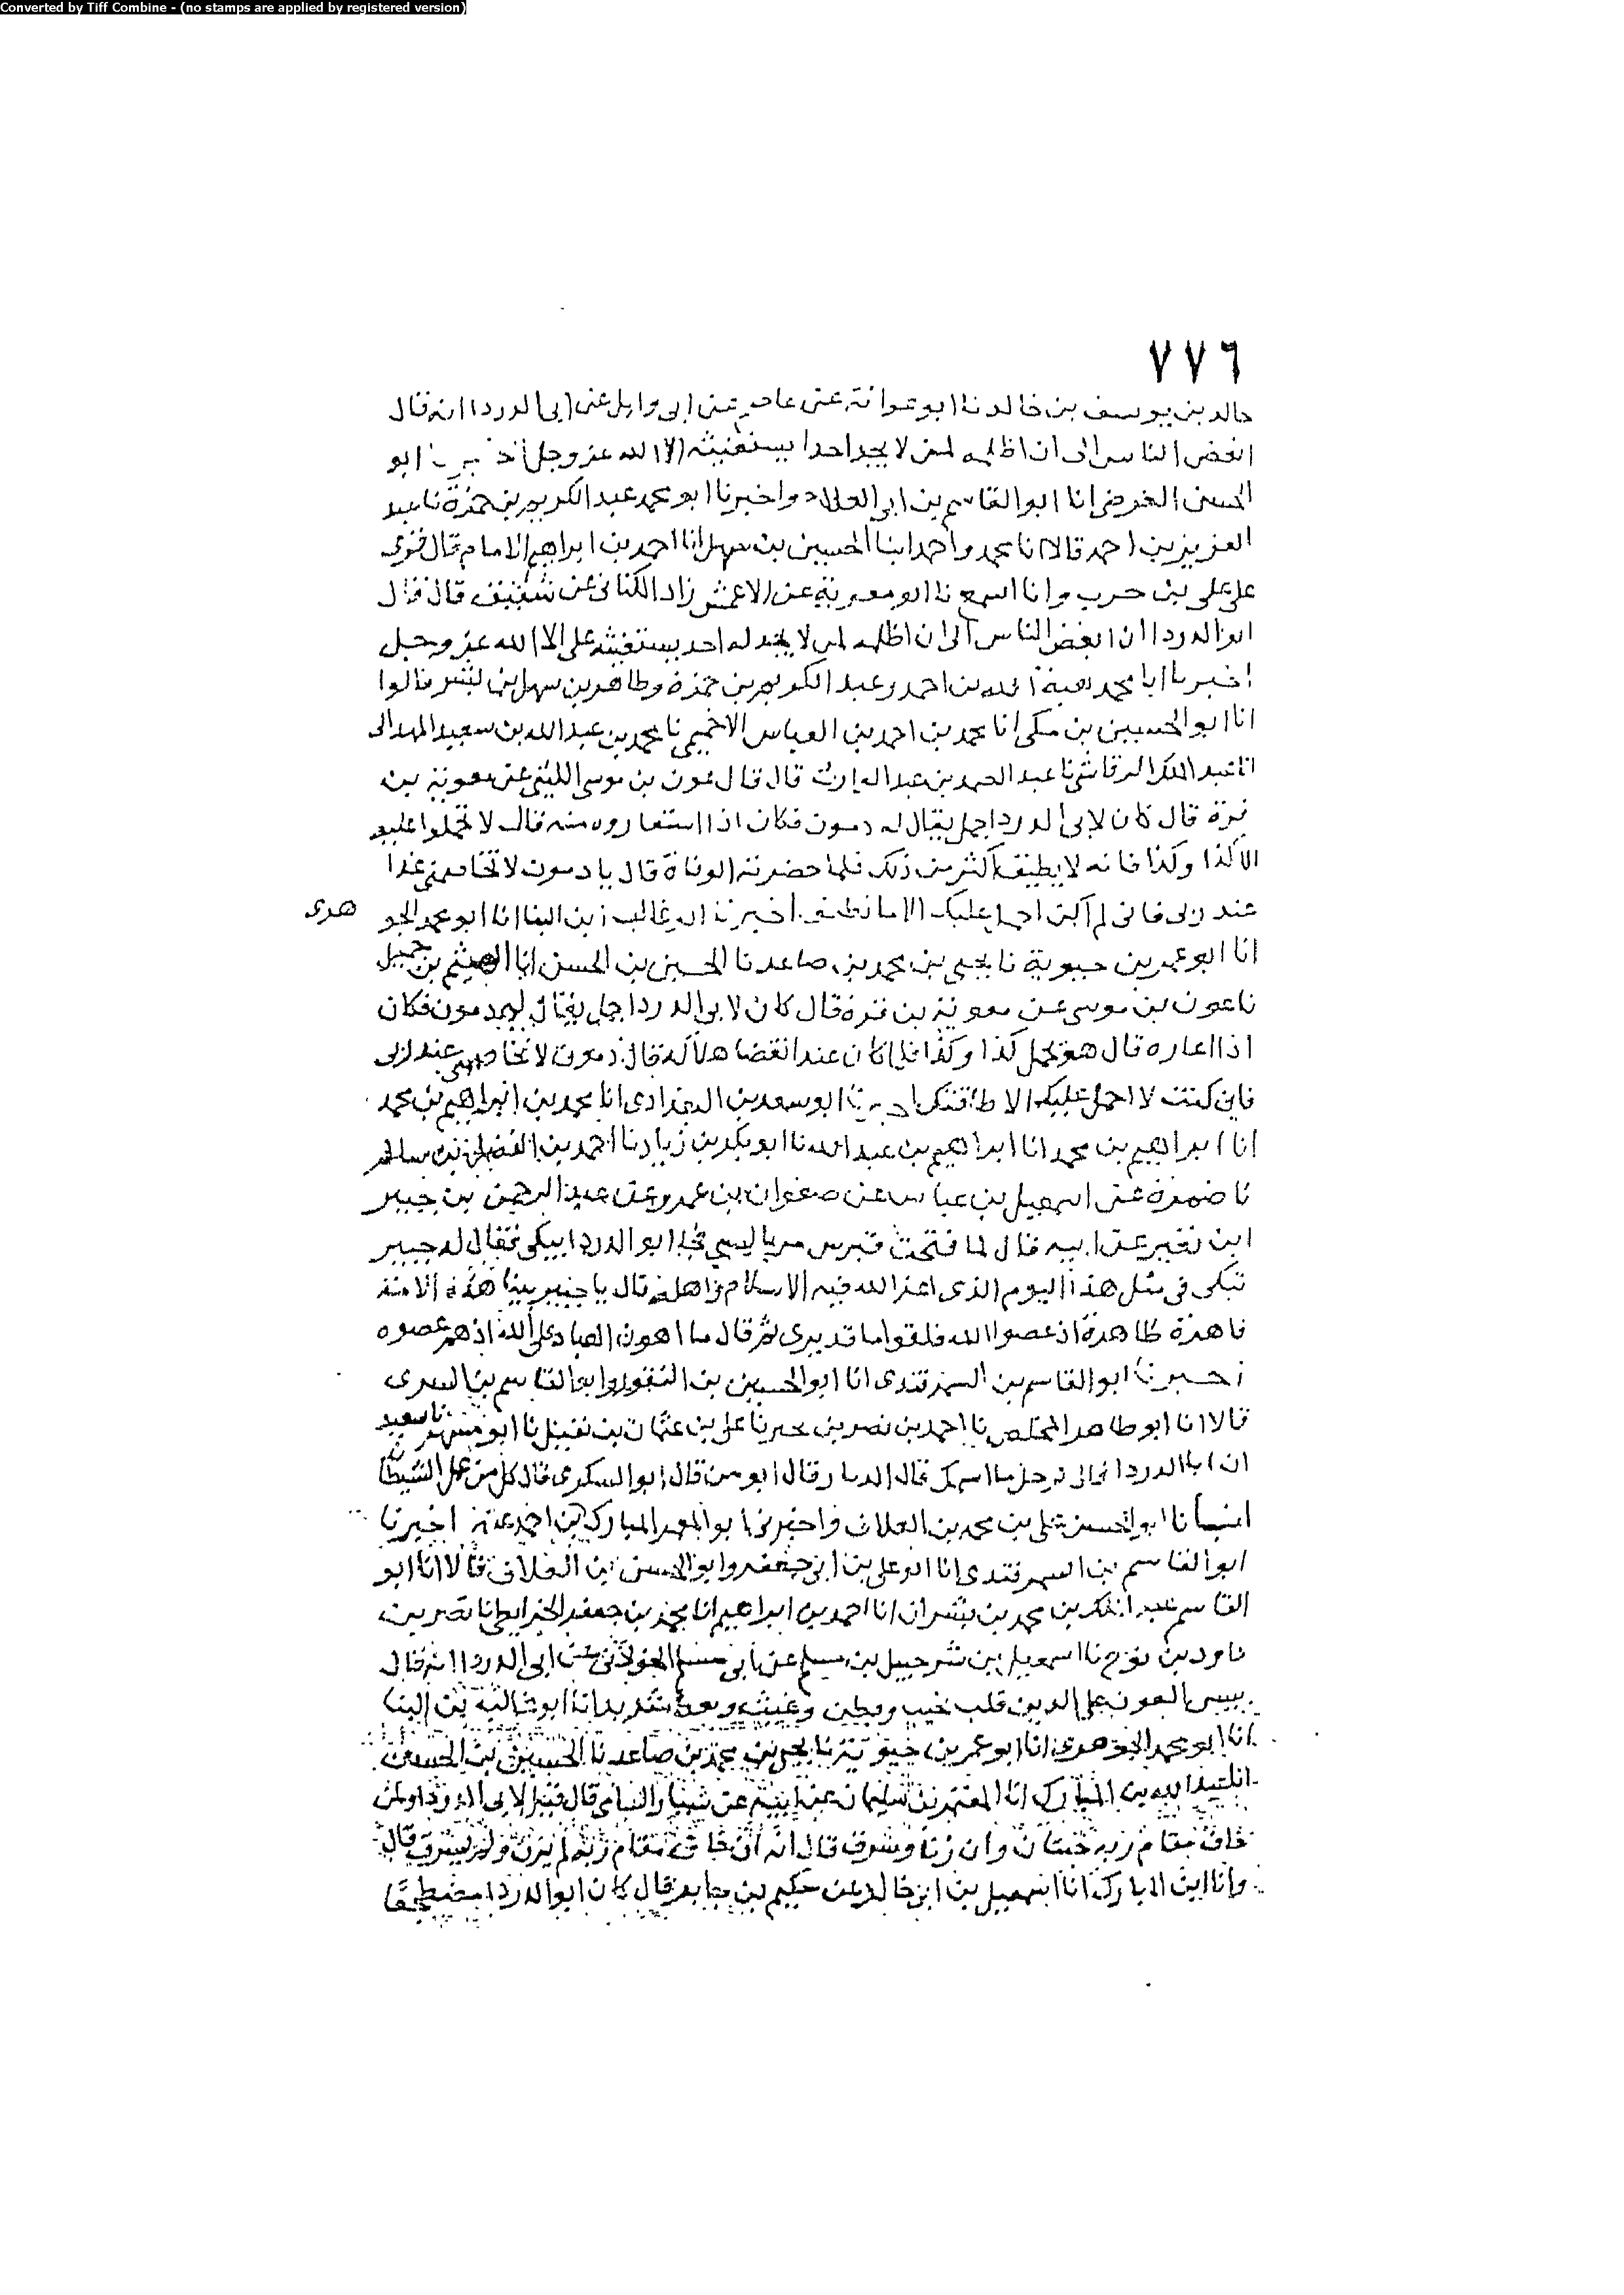 Converted by Tiff Combine - (no stamps are applied by registered version)
٧٧٦
خالد بن يوسف بن خالد نا ابو عوانة عن عاصم عن ابى وايل عن ابى الدردا انه قال
ابغض الناس الى ان اظلمه لمن لا يجد احدا يستغيثه الا الله عز وجل اخبرنا ابو
الحسن الفرضى انا ابو القاسم بن ابى العلاء واخبرنا ابو محمد عبد الكريم بن حمزة نا عبد
العزيز بن احمد قالا انا محمد واحمد ابنا الحسين بن سهل انا احمد بن ابراهيم الامام قال قرى
على على بن حرب وانا اسمع نا ابو معوية عن الاعمش زاد الكنانى عن شقيق قال قال
ابو الدردا ان ابغض الناس الى ان اظلمه لمن لا يجد له احد يستغيثه على الا الله عز وجل
اخبرنا ابا محمد هبة الله بن احمد وعبد الكريم بن حمزة وطاهر بن سهل بن بشر قالوا
انا ابو الحسين بن مكى انا محمد بن احمد بن العباس الاخميمى نا محمد بن عبد الله بن سعيد المهرانى
نا عبد الملك الرقاشى نا عبد الصمد بن عبد الوارث قال قال عون بن موسى الليثى عن معوية بن
قرة قال كان لابى الدردا جمل يقال له دمون فكان اذا استعاروه منه قال لا تحملوا عليه
الا كذا وكذا فانه لا يطيق اكثر من ذلك فلما حضرته الوفاة قال يا دمون لا تخاصمنى غدا
عند ربى فانى لم اكن احمل عليك الا ما تطيق اخبرنا ابو غالب بن البنا انا ابو محمد الجو هرى
انا ابو عمر بن حيوية نا يحيى بن محمد بن صاعد نا الحسين بن الحسن انا الهيثم بن جميل
نا عون بن موسى عن معوية بن قرة قال كان لابى الدردا جمل يقال له دمون فكان
اذا اعاره قال هو يحمل كذا وكذا فلما كان عند انقضا هلاكه قال دمون لا تخاصمنى عند ربى
فانى كنت لا احمل عليك الا طاقتك اخبرنا ابو سعد بن البغدادى انا محمد بن ابراهيم بن محمد
انا ابراهيم بن محمد انا ابراهيم بن عبد الله نا ابو بكر بن زياد نا احمد بن الفضل بن سالم
نا ضمرة عن اسمعيل بن عياش عن صفوان بن عمرو عن عبد الرحمن بن جبير
ابن نفير عن ابيه قال لما فتحت قبرس مر بالسبى فجا ابو الدردا يبكى فقال له جبير
تبكى فى مثل هذا اليوم الذى اعز الله فيه الاسلام واهله قال يا جبير بينا هذه الامة
قاهرة ظاهرة اذ عصوا الله فلقوا ما قد يرى ثم قال ما اهون العباد على الله اذ هم عصوه
اخبرنا ابو القاسم بن السمرقندى انا ابو الحسين بن النقور وابو القاسم بن البسرى
قالا انا ابو طاهر المخلص نا احمد بن نصر بن بحير نا على بن عثمان بن نفيل نا ابو مسهر نا سعيد
ان ابا الدردا قال لرجل ما اسمك قال قال ابو السكرى قال كل من عمل الشيطان
انبأنا ابو الحسن على بن محمد بن العلاف واخبرنى ابو المعمر المبارك بن احمد عنه اخبرنا
ابو القاسم بن السمرقندى انا ابو على بن ابى جعفر وابو الحسن بن العلاف قالا انا ابو
القاسم عبد الملك بن محمد بن بشران انا احمد بن ابراهيم انا محمد بن جعفر الخرايطى نا نصر بن
داود بن نوح نا اسمعيل بن شرحبيل بن مسلم عن ابى مسلم الخولانى عن ابى الدردا انه قال
بيس العون على الدين قلب نخيب وبطن رغيب ونعظ شديد انا ابو غالب بن البنا
انا ابو محمد الجوهرى انا ابو عمر بن حيوية نا يحيى بن محمد بن صاعد نا الحسين بن الحسن
انا عبد الله بن المبارك انا المعتمر بن سليمان عن ابيه عن سيار الشامى قال قيل لابى الدردا ولمن
خاف مقام ربه جنتان وان زنا وسرق قال انه ان خاف مقام ربه لم يزن ولم يسرق قال
وانا ابن المبارك انا اسمعيل بن ابى خالد عن حكيم بن جابر قال كان ابو الدردا مضطجعا